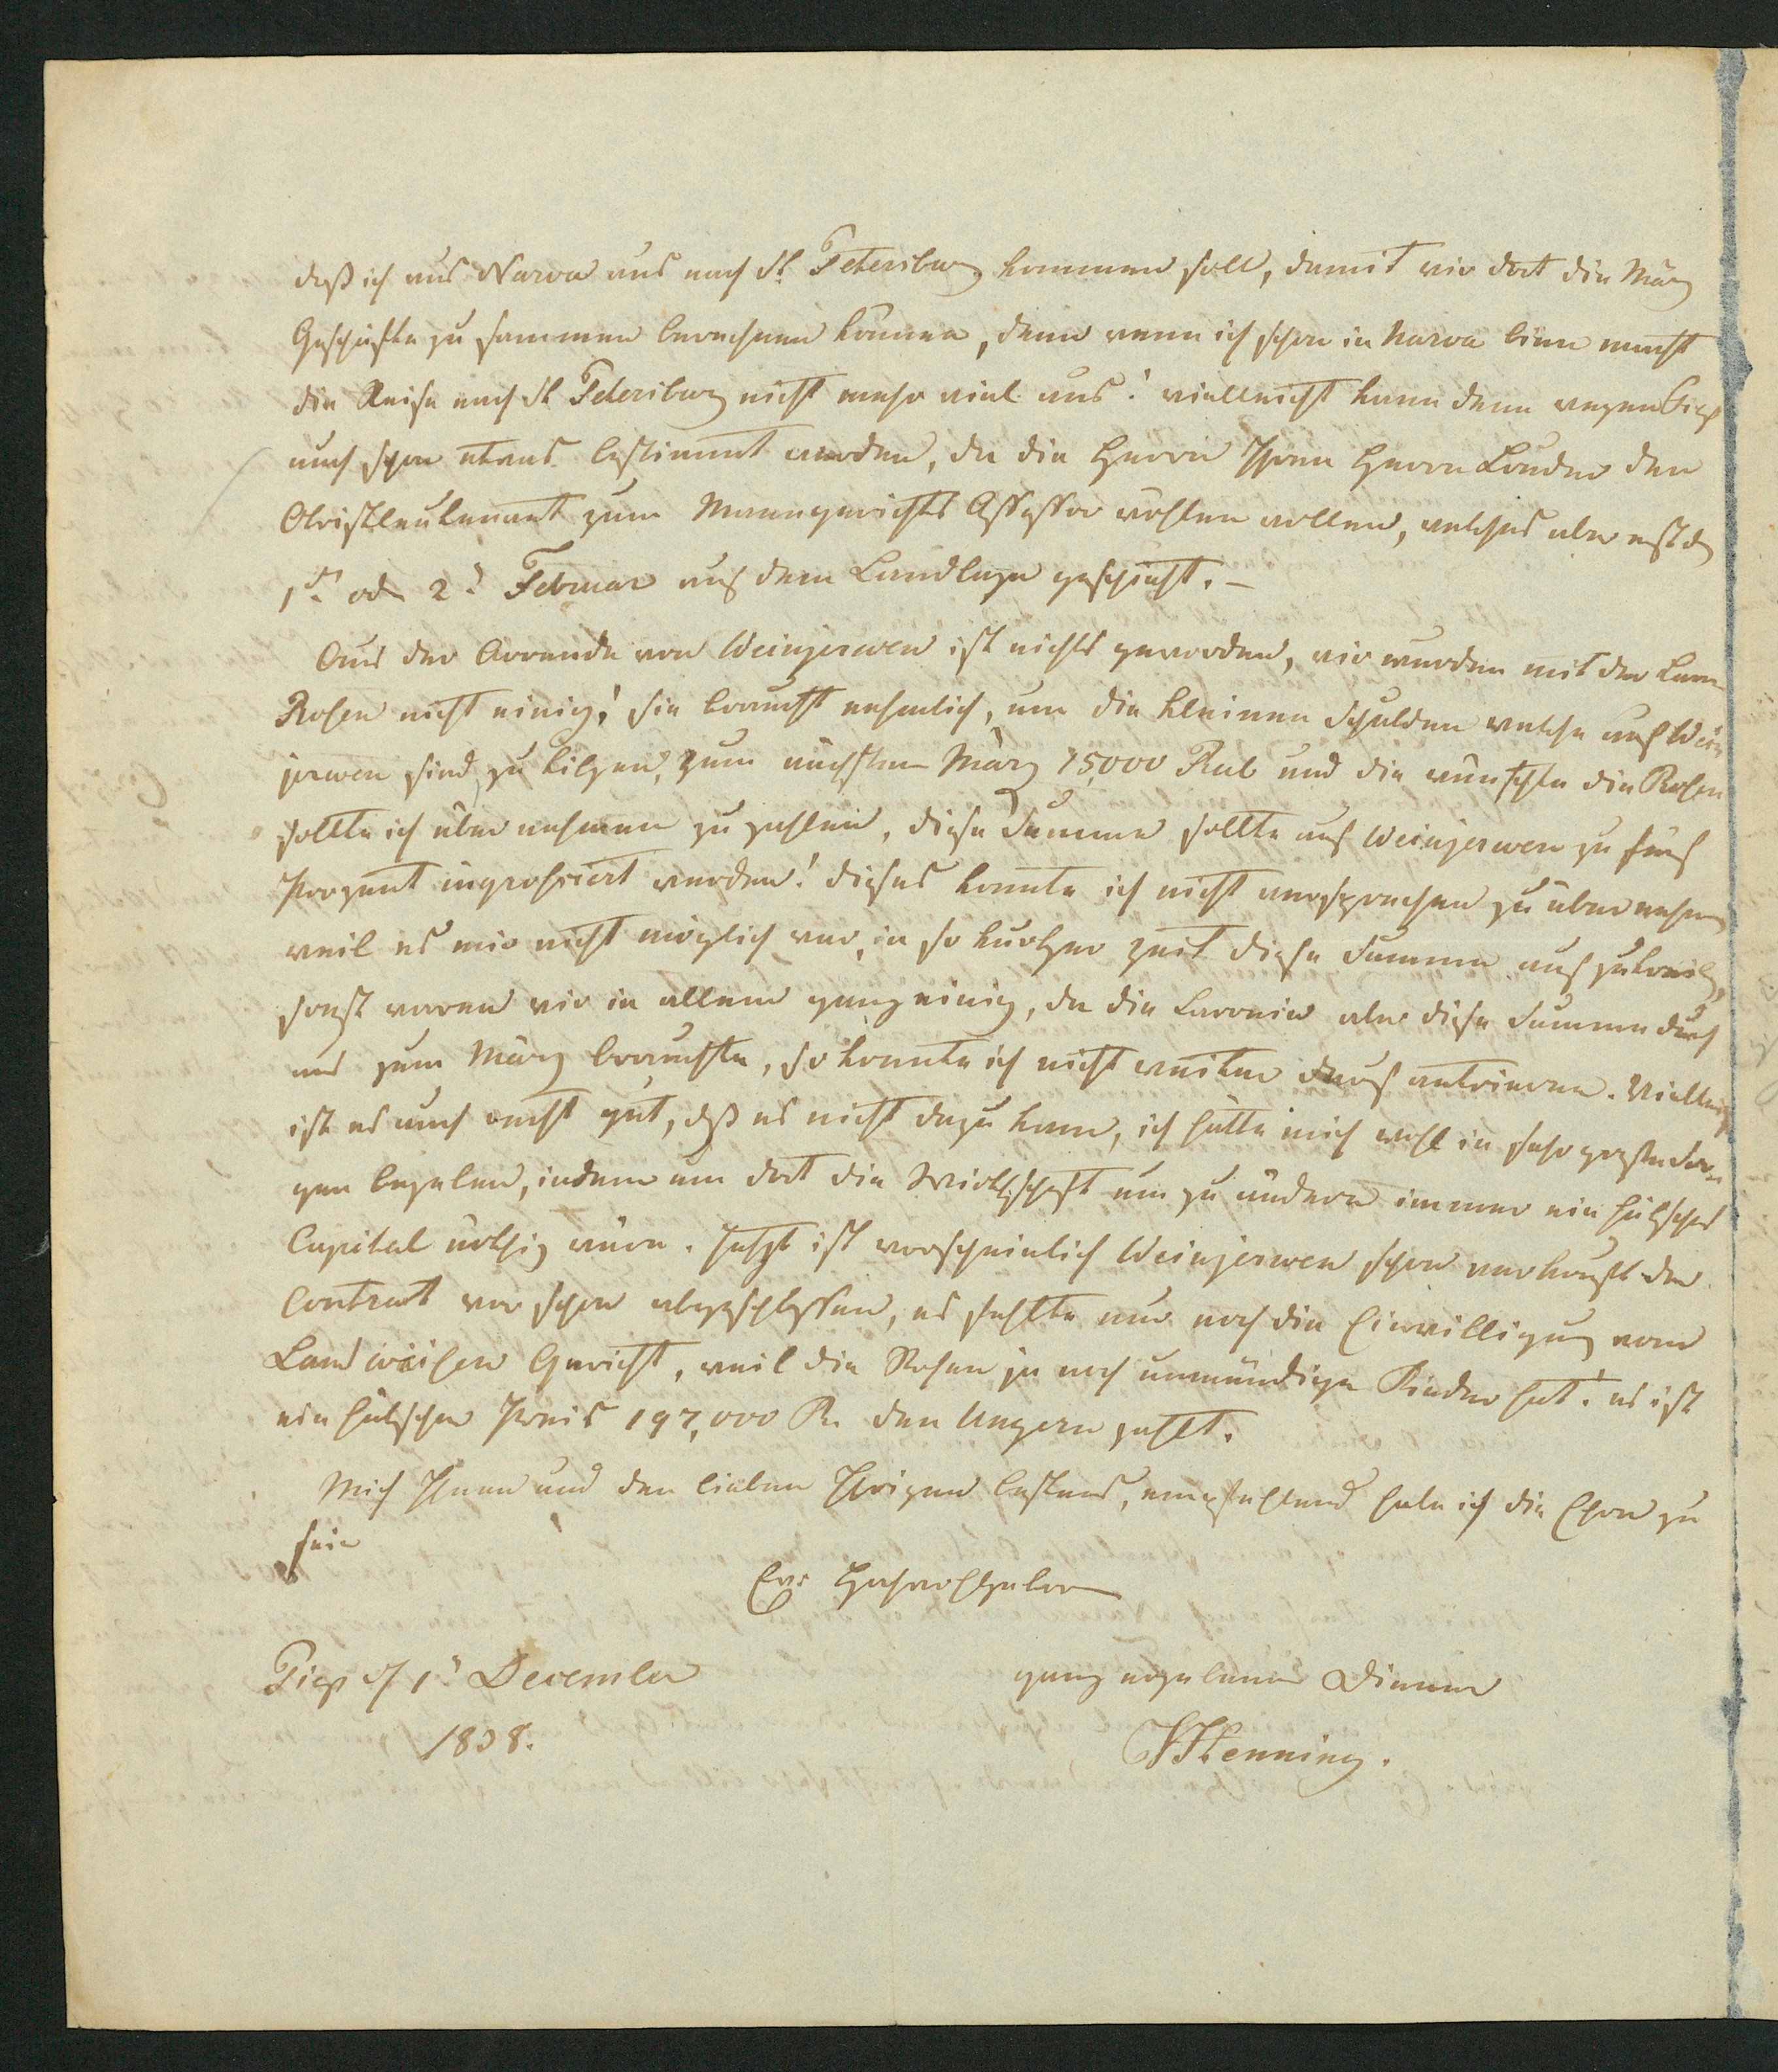 daß ich aus Narva aus nach St. Petersburg kommen soll, damit wir dort die März
Geschäfte zu sammen berechnen können, denn wenn ich schon in Narva binn macht
die Reise nach St Petersburg nicht mehr viel aus! vielleicht kann denn wegen Piep
auch schon etwas bestimmt werden, da die Herrn Ihren Herrn Bruder den
Obristleutenant zum Manngerichts Assessor wählen wollen, welches aber erst d
1t. od 2t Februar auf dem Landtage geschieht. —
Aus der Arrende von Weinjerwen ist nichts geworden, wir wurden mit der Baro-
Rosen nicht einig! sie braucht nehmlich, um die kleinen Schulden welche auf Wein
jerwen sind zu tilgen, zum nächsten März 75000 Rub und die wünschte die Rosen
sollte ich über nehmen zu zahlen, diese Summe sollte auf Weinjerwen zu fünf
Prozent ingrossiert werden! dieses konnte ich nicht versprechen zu über nehmen
weil es mir nicht möglich war, in so kurtzer zeit diese Summe auf zutreib,
sonst waren wir in allem ganz einig, da die Baronin aber diese Summe durch
aus zum März brauchte, so konnte ich nicht weiter drauf antrieren. Vielleicht
ist es auch recht gut, daß es nicht dazu kam, ich hätte mich wohl in sehr große Sor-
gen begeben, indem um dort die Wirthschaft um zu ändern immer ein hübsches
Capital nöthig wäre. Jetzt ist warscheinlich Weinjerwen schon verkauft der
Contract war schon abgeschlossen, es fehlte nur noch die Einwilligung vom
Land waisen Gericht, weil die Rosen ja noch unmündige Kinder hat! es ist
ein hübscher Preis 197,000 R. den Ungern zahlt.
Mich Ihnen und den lieben Ihrigen bestens, empfehlend habe ich die Ehre zu
sein
Ew: Hochwohlgebor
Piep d 1t December
ganz ergebener Diener
1838.
Henning.